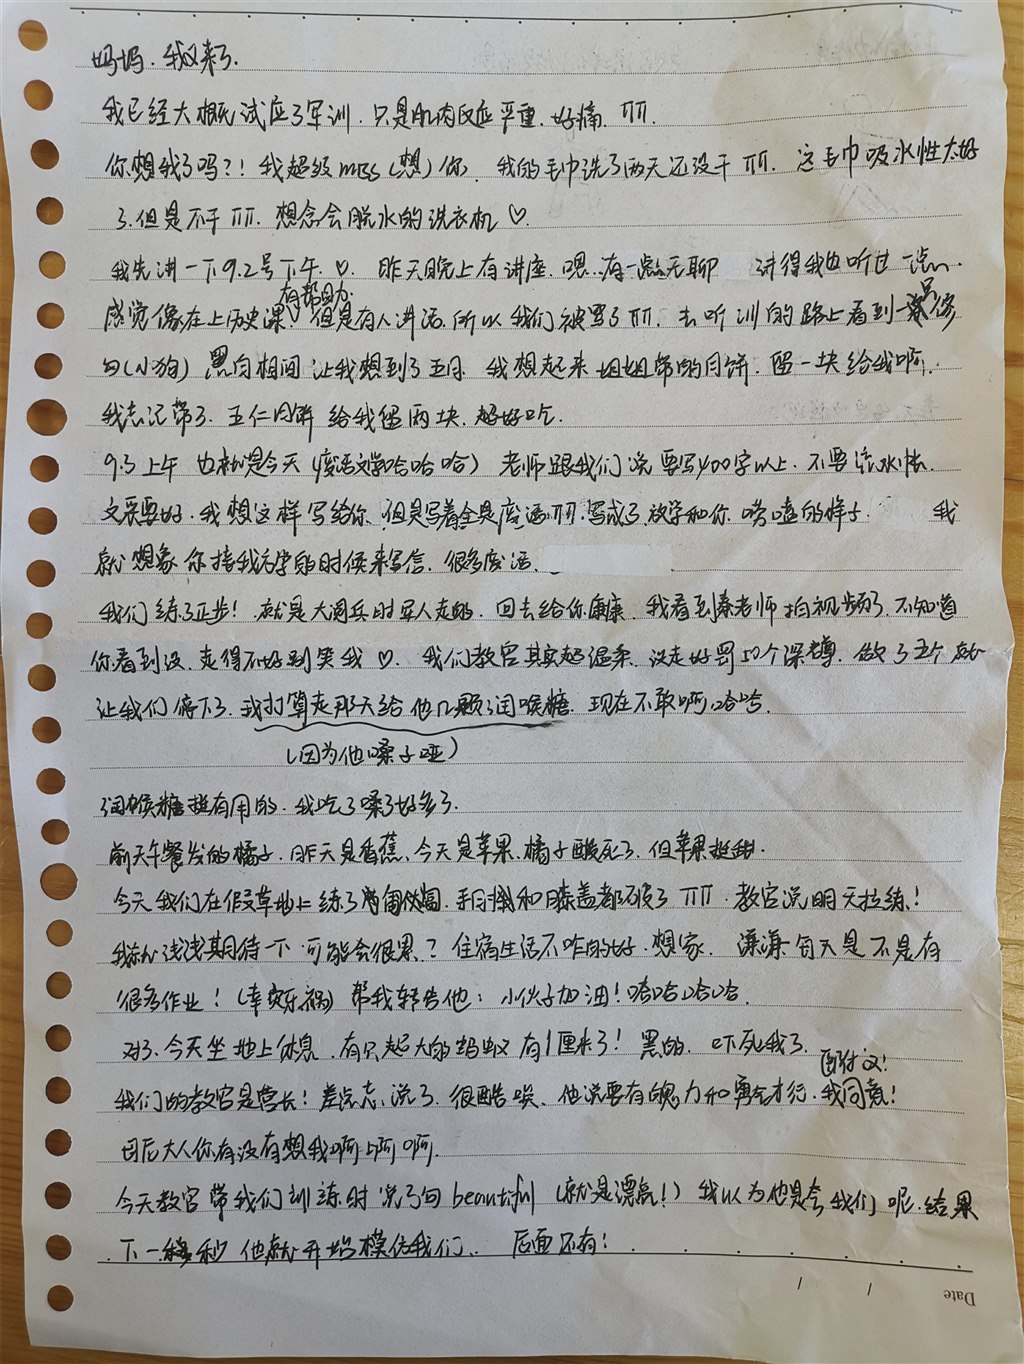 妈妈.我又来了.
我已经大概试应了军训.只是肌肉反应严重.好痛.TTT.
你想我了吗?!我超级miss(想)你.我的毛巾洗了两天还没干TTT.这毛巾吸水性太好
了.但是不干TTT.想念会脱水的洗衣机♡.
我先讲一下9.2号下午.♡.昨天晚上有讲座.嗯...有一点无聊 讲得我也听过一点.
有帮助.
感觉像在上历史课.但是有人讲话.所以我们被骂了TTT.去听训的路上看到一只修
勾(小狗)黑白相间让我想到了五月.我想起来姐姐带的月饼.留一块给我啊.
我忘记带了.五仁月饼给我留两块.超好吃.
9.3上午也就是今天(废话文学哈哈哈)老师跟我们说要写400字以上.不要流水帐.
文采要好.我想这样写给你.但是写着全是废话TTT.写成了放学和你唠嗑的样子. 我
就想象你接我放学的时候来写信.很多废话.
我们练了正步!就是大阅兵时军人走的.回去给你康康.我看到秦老师拍视频了.不知道
你看到没.走得不好别笑我♡.我们教官其实超温柔.没走好罚50个深蹲.做了五个就
让我们停下了.我打算走那天给他几颗润喉糖.现在不敢啊哈哈.
(因为他嗓子哑)
润喉糖挺有用的.我吃了嗓子好多了.
前天午餐发的橘子.昨天是香蕉、今天是苹果.橘子酸死了.但苹果挺甜.
今天我们在假草地上练了匍匐.手和膝盖都破了TTT.教官说明天拉练!
我就浅浅期待一下.可能会很累?住宿生活不咋的好.想家.濂濂每天是不是有
很多作业!(幸灾乐祸)帮我转告他:小伙子加油!哈哈哈哈.
对了.今天坐地上休息.有只超大的蚂蚁有1厘米了!黑的.吓死我了.
我们的教官是营长!差点忘说了.很酷唉.他说要有魄力和勇气才行.我同意!
母后大人你有没有想我啊啊啊.
今天教官带我们训练时说了句beautiful(就是漂亮!)我以为他是夸我们呢.结果
下一秒他就开始模仿我们.后面还有!
Date